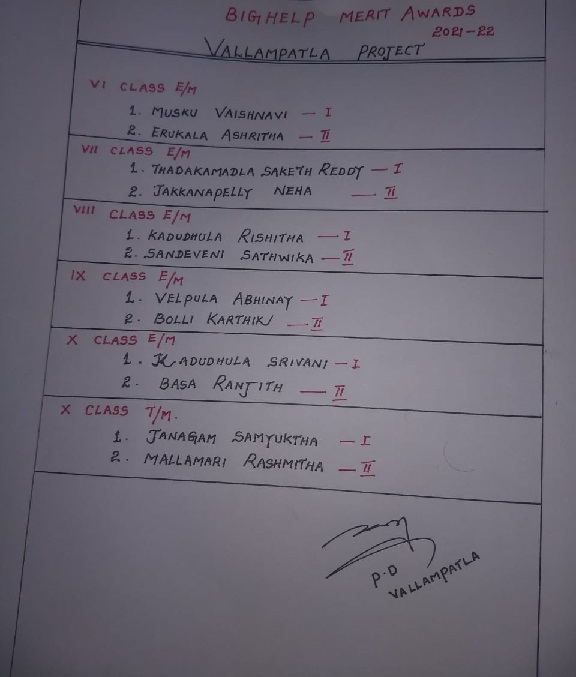 BIGHELP MERIT AWARDS
2021-22
VALLAMPATLA PROJECT
VI CLASS E/M
1. MUSKU VAISHNAVI — I
2. ERUKALA ASHRITHA — II
VII CLASS E/M
1. THADAKAMADLA SAKETH REDDY — I
2. JAKKANAPELLY NEHA — II
VIII CLASS E/M
1. KADUDHULA RISHITHA — I
2. SANDEVENI SATHWIKA — II
IX CLASS E/M
1. VELPULA ABHINAY — I
2. BOLLI KARTHIK — II
X CLASS E/M
1. KADUDHULA SRIVANI — I
2. BASA RANJITH — II
X CLASS T/M.
1. JANAGAM SAMYUKTHA — I
2. MALLAMARI RASHMITHA — II
P.D
VALLAMPATLA